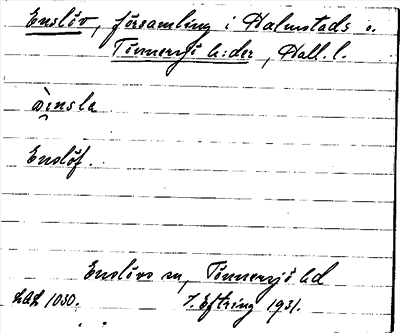 Enslöv, församling i Halmstads o.
Tönnersjö h:der, Hall. l.
Enslöf.
Enslövs sn, Tönnersjö hd
LAL 1030. J. Eftring 1931.